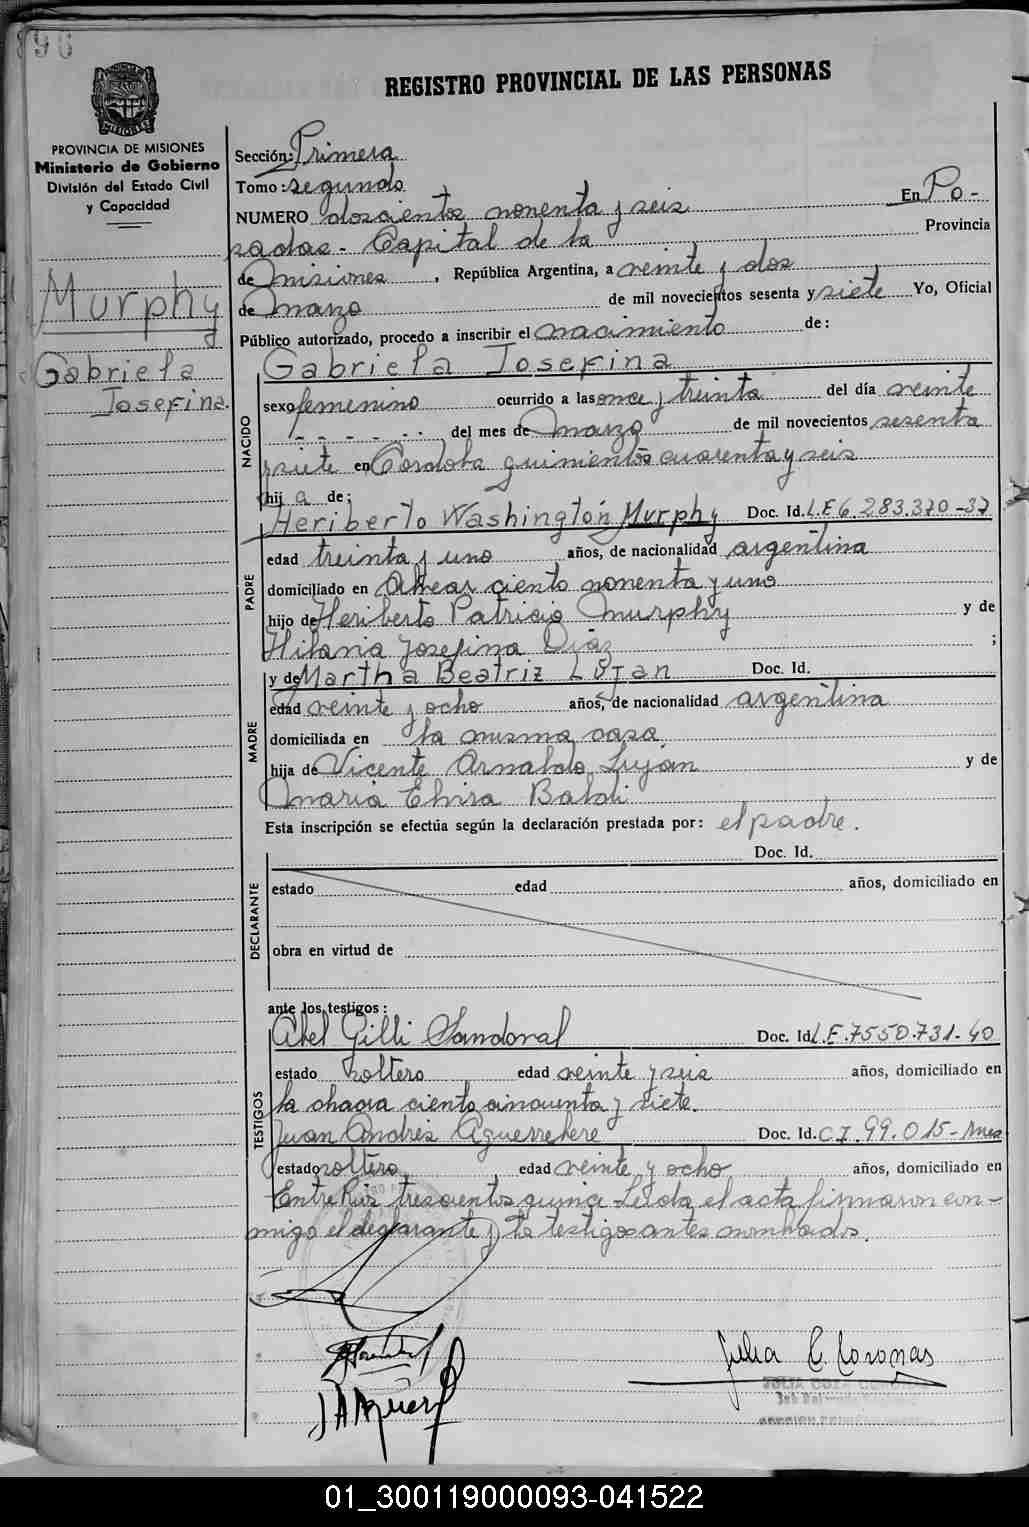 REGISTRO PROVINCIAL DE LAS PERSONAS
PROVINCIA DE MISIONES
Ministerio de Gobierno
División del Estado Civil
y Capacidad
Murphy
Gabriela
Josefina
Sección: Primera
Tomo: segundo
NUMERO doscientos nonenta y seis En Po-
sadas - Capital de la Provincia
de Misiones, República Argentina, a veinte y dos
de Marzo de mil novecientos sesenta y siete Yo, Oficial
Público autorizado, procedo a inscribir el nacimiento de:
Gabriela Josefina
NACIDO
sexo femenino ocurrido a las once y treinta del día veinte
del mes de Marzo de mil novecientos sesenta
y siete en Cordoba quinientos cuarenta y seis
hij a de:
Heriberto Washington Murphy Doc. Id. L.E 6.283.370-37
PADRE
edad treinta y uno años, de nacionalidad argentina
domiciliado en Alvear ciento nonenta y uno
hijo de Heriberto Patricio Murphy y de
Hilaria Josefina Diaz ;
y de Martha Beatriz Luján Doc. Id.
MADRE
edad veinte y ocho años, de nacionalidad argentina
domiciliada en la misma casa
hija de Vicente Arnaldo Luján y de
Maria Elvira Baldi
Esta inscripción se efectúa según la declaración prestada por: el padre.
Doc. Id.
DECLARANTE
estado edad años, domiciliado en
obra en virtud de
ante los testigos:
Abel Gilli Sandoval Doc. Id. L.E.7550.731-40
TESTIGOS
estado soltero edad veinte y seis años, domiciliado en
la chacra ciento cincuenta y siete.
Juan Andrés Aguerrebere Doc. Id. C.I. 99.015-Mnes
estado soltero edad veinte y ocho años, domiciliado en
Entre Rios trescientos quince Leida el acta firmaron con-
migo el declarante y los testigos antes nombrados.
Julia C. Coronas
01_300119000093-041522